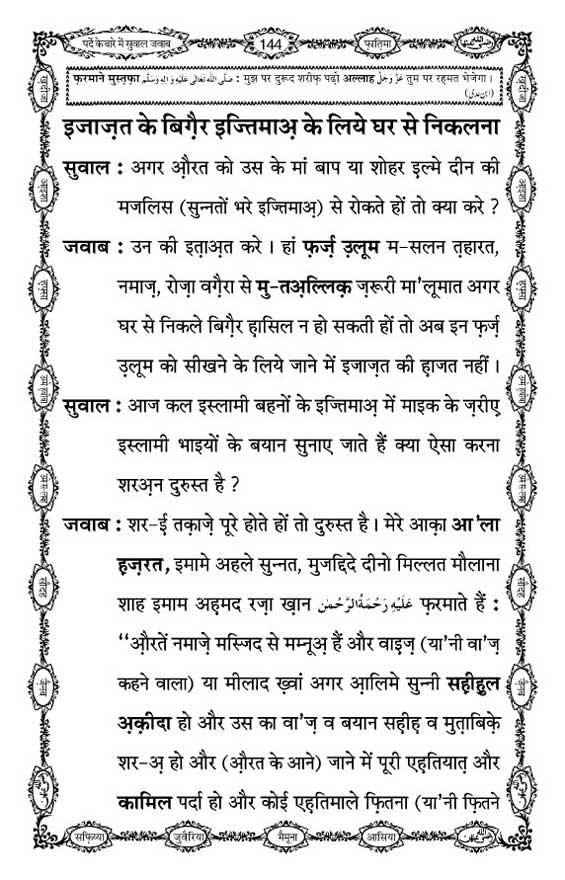 पर्दे के बारे में सुवाल जवाब
144
फ़ातिमा
फ़रमाने मुस्तफ़ा صَلَّى اللهُ تَعَالٰى عَلَيْهِ وَاٰلِهٖ وَسَلَّم : मुझ पर दुरूद शरीफ़ पढ़ो अल्लाह عَزَّوَجَلَّ तुम पर रहमत भेजेगा ।
(ابن عدی)
इजाज़त के बिग़ैर इज्तिमाअ़ के लिये घर से निकलना
सुवाल : अगर औ़रत को उस के मां बाप या शोहर इ़ल्मे दीन की
मजलिस (सुन्नतों भरे इज्तिमाअ़) से रोकते हों तो क्या करे ?
जवाब : उन की इत़ाअ़त करे । हां फ़र्ज़ उ़लूम म-सलन त़हारत,
नमाज़, रोज़ा वग़ैरा से मु-तअ़ल्लिक़ ज़रूरी मा'लूमात अगर
घर से निकले बिग़ैर ह़ासिल न हो सकती हों तो अब इन फ़र्ज़
उ़लूम को सीखने के लिये जाने में इजाज़त की ह़ाजत नहीं ।
सुवाल : आज कल इस्लामी बहनों के इज्तिमाअ़ में माइक के ज़रीए़
इस्लामी भाइयों के बयान सुनाए जाते हैं क्या ऐसा करना
शरअ़न दुरुस्त है ?
जवाब : शर-ई तक़ाज़े पूरे होते हों तो दुरुस्त है । मेरे आक़ा आ'ला
ह़ज़रत, इमामे अहले सुन्नत, मुजद्दिदे दीनो मिल्लत मौलाना
शाह इमाम अह़मद रज़ा ख़ान عَلَيْهِ رَحْمَةُ الرَّحْمٰن फ़रमाते हैं :
‘‘औ़रतें नमाज़े मस्जिद से मम्नूअ़ हैं और वाइज़ (या'नी वा'ज़
कहने वाला) या मीलाद ख़्वां अगर आ़लिमे सुन्नी सह़ीह़ुल
अ़क़ीदा हो और उस का वा'ज़ व बयान सह़ीह़ व मुत़ाबिक़े
शर-अ़ हो और (औ़रत के आने) जाने में पूरी एह़तियात़ और
कामिल पर्दा हो और कोई एह़तिमाले फ़ितना (या'नी फ़ितने
सफ़िय्या
जुवैरिया
मैमूना
आसिया